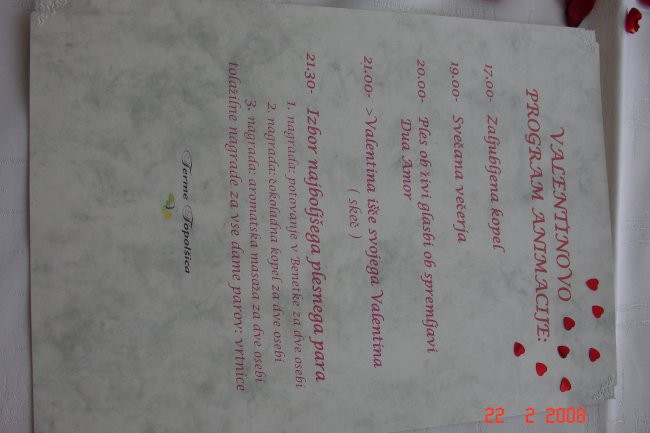 VALENTINOVO
PROGRAM ANIMACIJE:
17.00- Zaljubljena kopel
19.00- Svečana večerja
20.00- Ples ob živi glasbi ob spremljavi
Dua Amor
21.00- >Valentina išče svojega Valentina
( skeč )
21.30- Izbor najboljšega plesnega para
1. nagrada: potovanje v Benetke za dve osebi
2. nagrada: čokoladna kopel za dve osebi
3. nagrada: aromatska masaža za dve osebi
tolažilne nagrade za vse dame parov: vrtnice
Terme Topolšica
22 2 2008